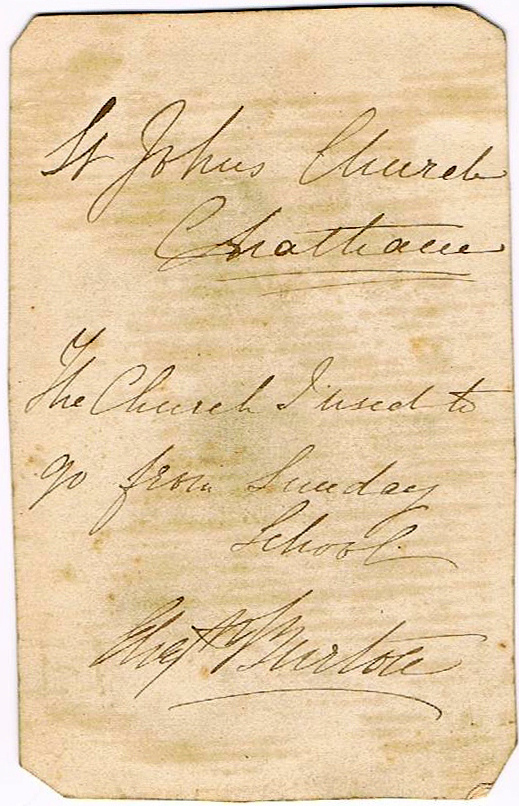 St Johns Church
Chatham
The Church I used to
go from Sunday
School.
Burton